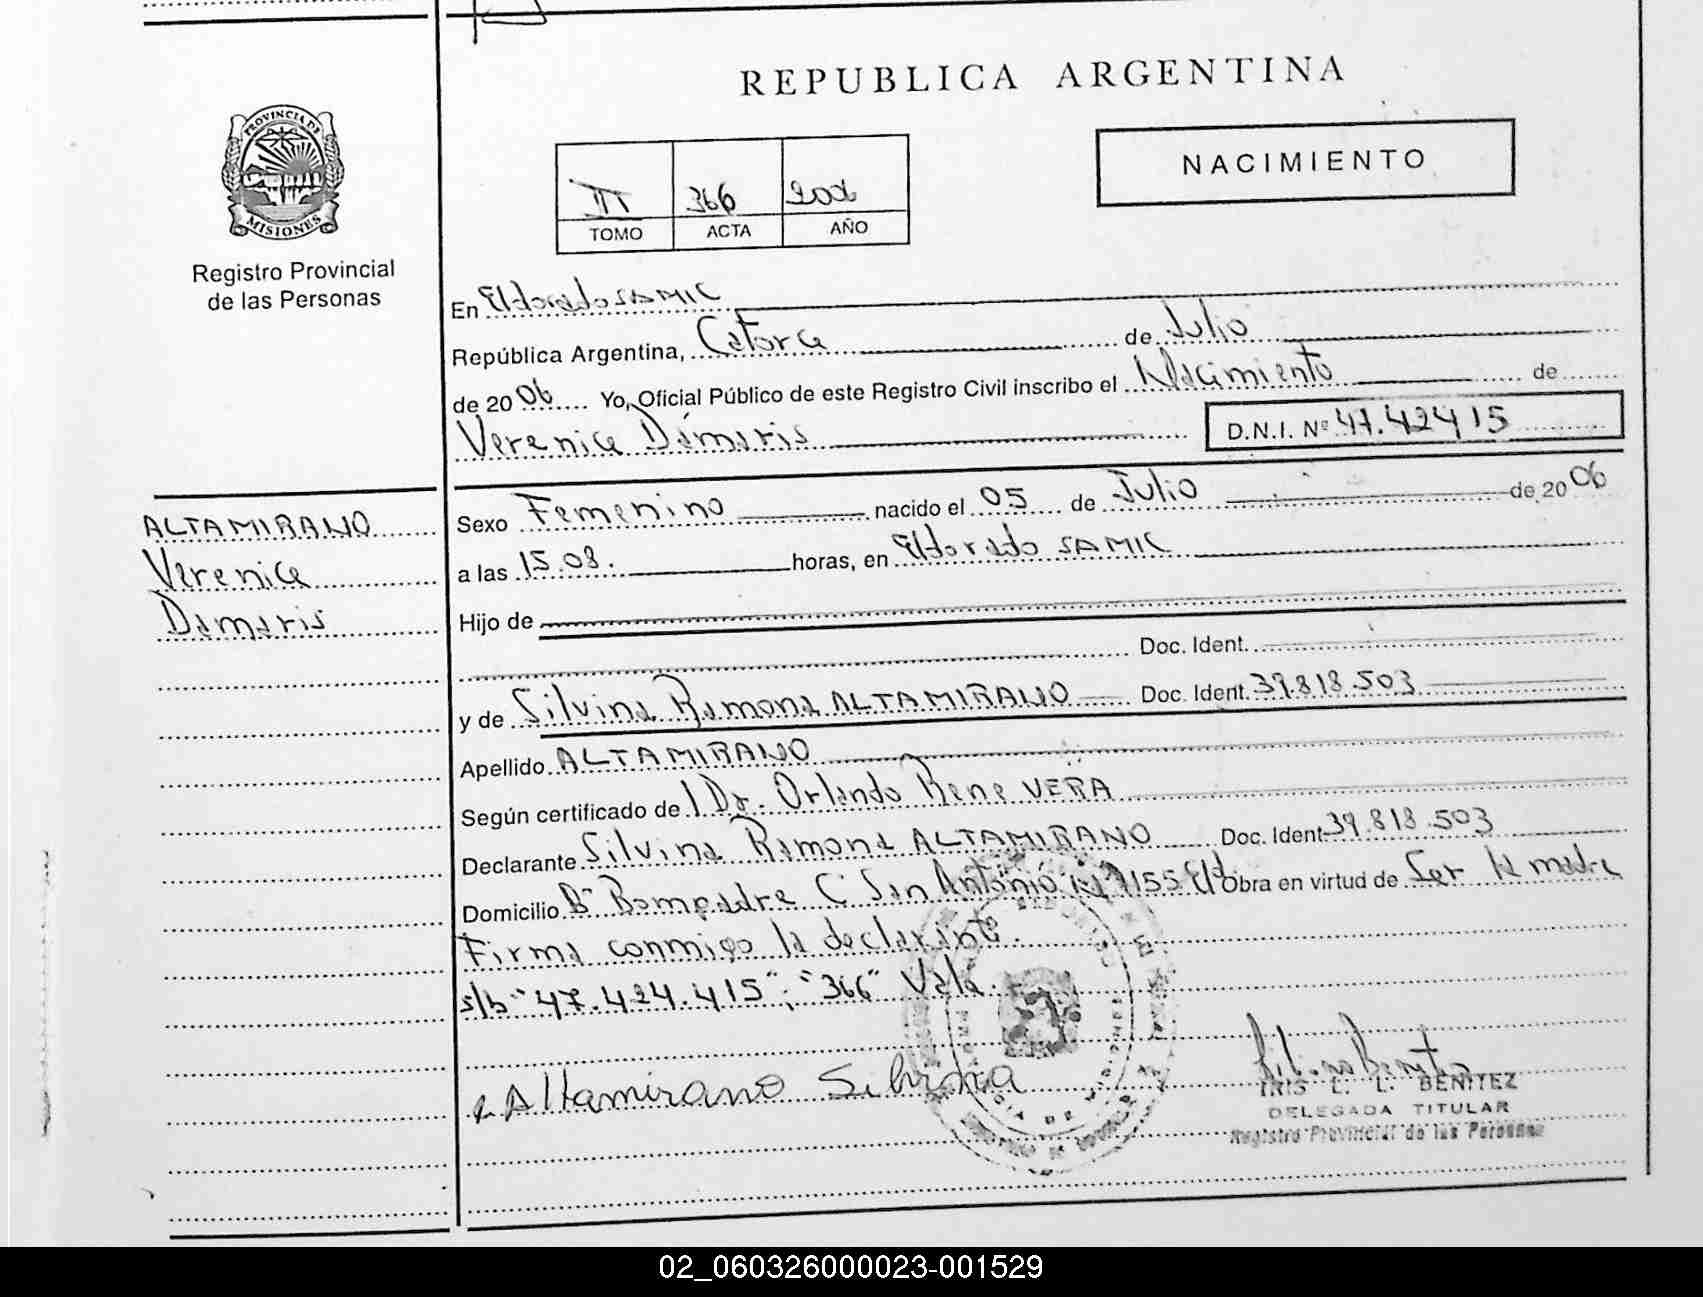 REPUBLICA ARGENTINA
PROVINCIA DE
MISIONES
Registro Provincial
de las Personas
NACIMIENTO
II 366 2006
TOMO ACTA AÑO
En Eldorado SAMIC
República Argentina, Catorce de Julio
de 2006 Yo, Oficial Público de este Registro Civil inscribo el Nacimiento de
Verenice Dámaris D.N.I. Nº 47.424415
ALTAMIRANO
Verenice
Damaris
Sexo Femenino nacido el 05 de Julio de 2006
a las 15.08. horas, en Eldorado SAMIC
Hijo de
Doc. Ident.
y de Silvina Ramona ALTAMIRANO Doc. Ident. 39.818.503
Apellido ALTAMIRANO
Según certificado de Dr. Orlando Rene VERA
Declarante Silvina Ramona ALTAMIRANO Doc. Ident 39.818.503
Domicilio Bº Bompadre C San Antonio 7155 Eldº Obra en virtud de Ser la madre
Firma conmigo la declarante.
s/b "47.424.415"; "366" Vale.
Altamirano Silvina
IRIS L. L. BENITEZ
DELEGADA TITULAR
Registro Provincial de las Personas
02_060326000023-001529